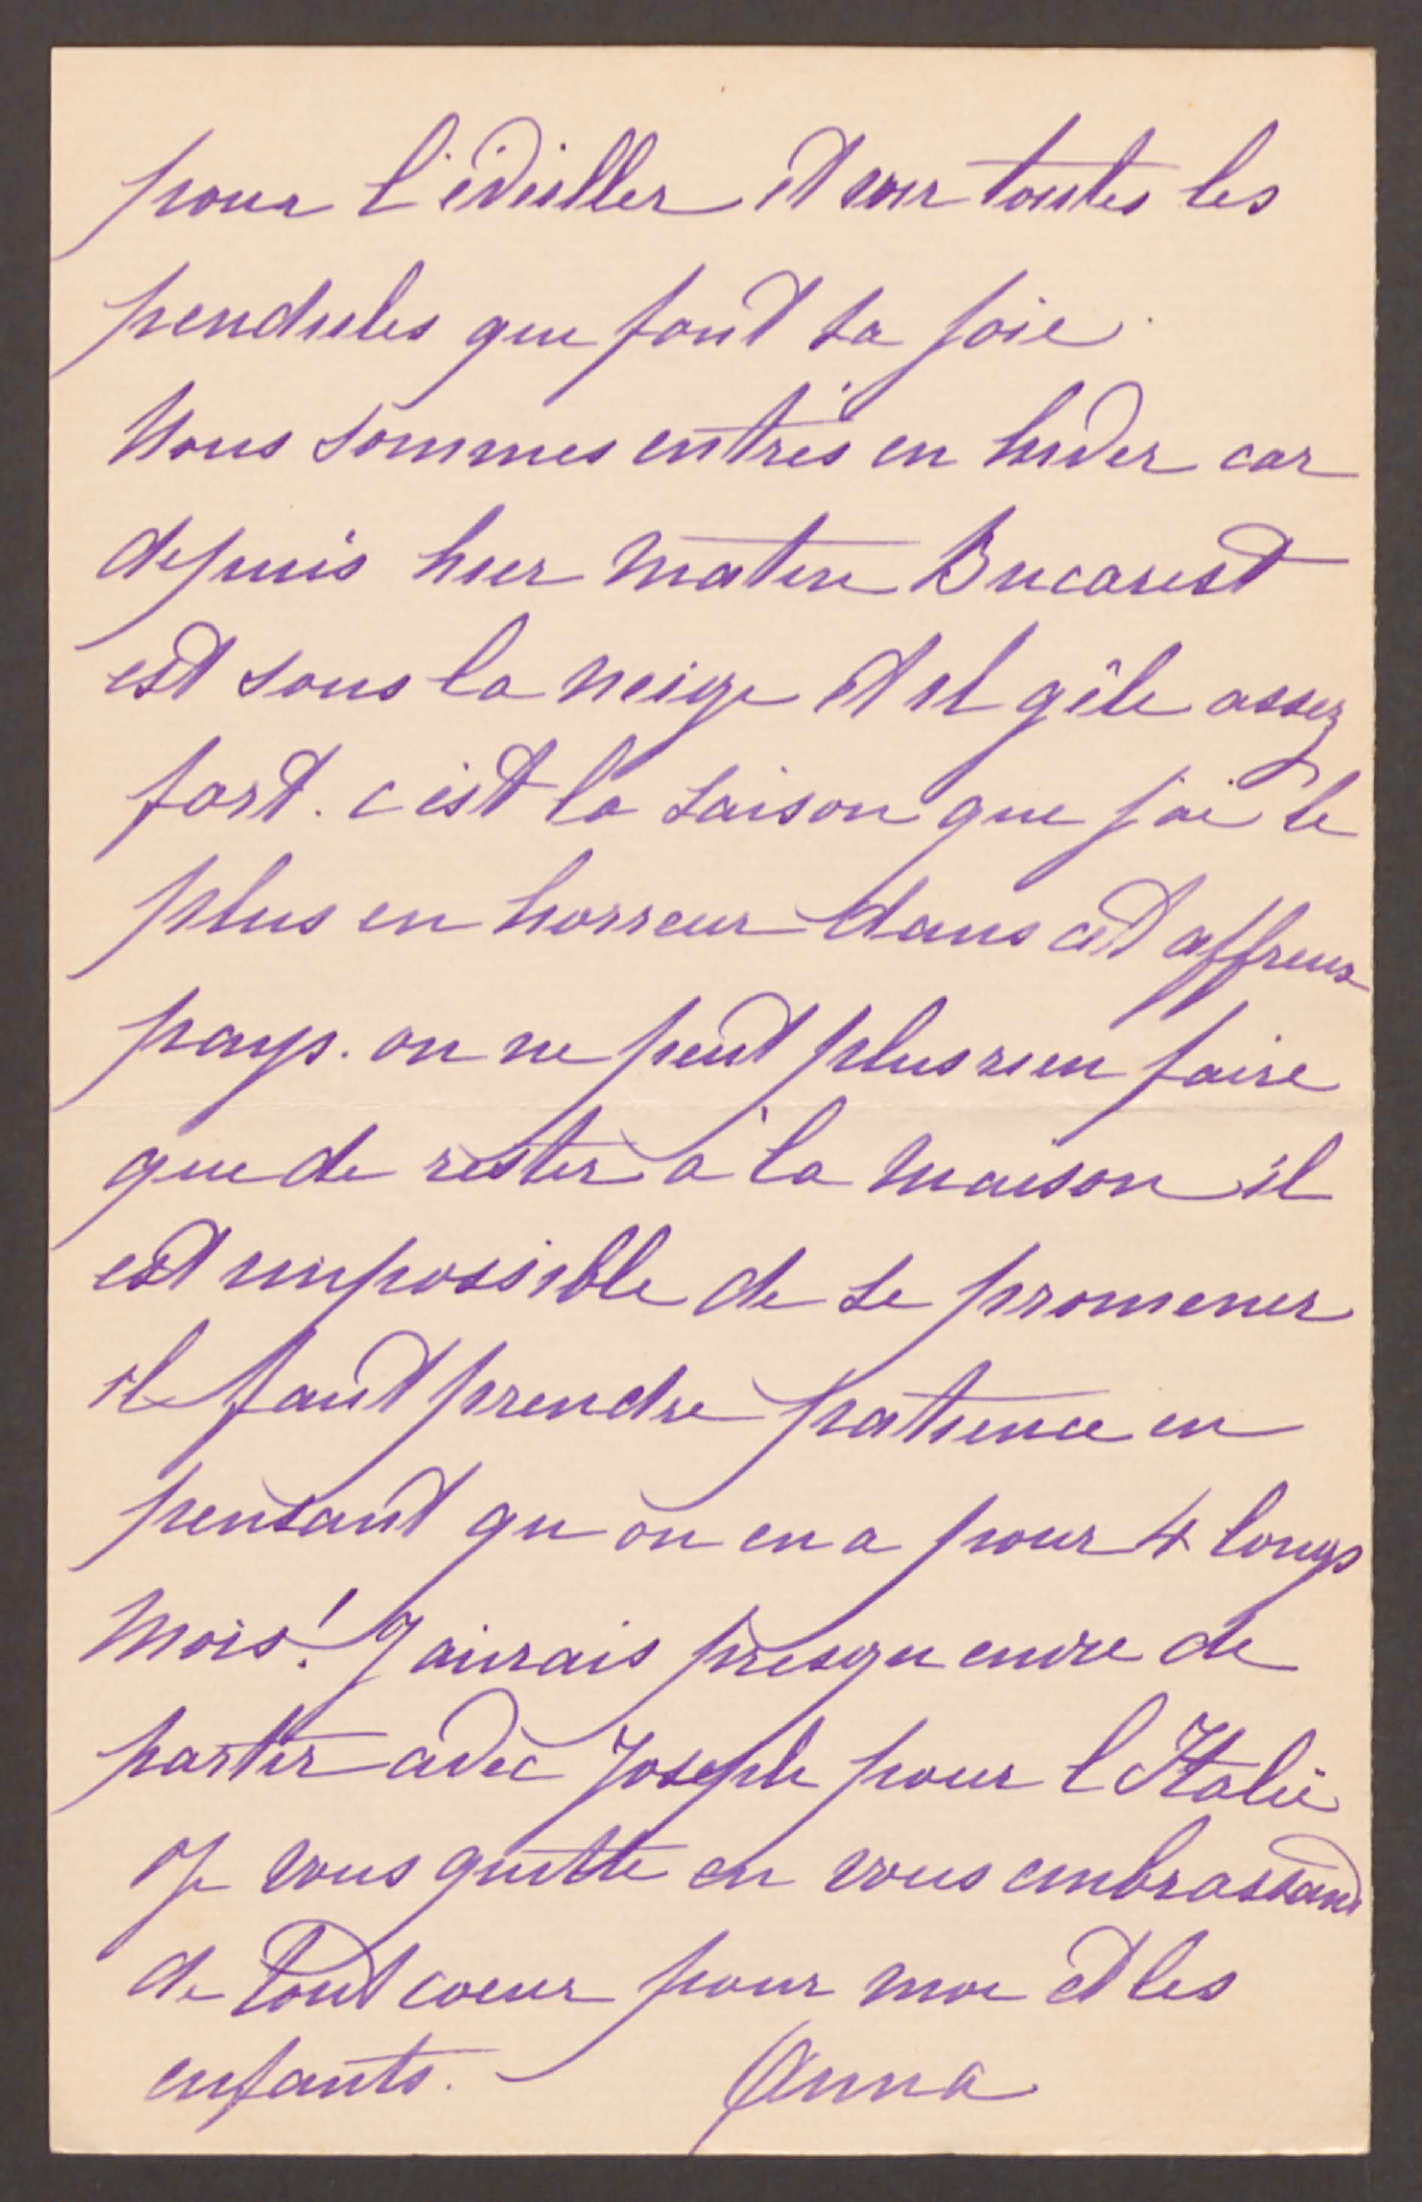 pour l'éveiller et voir toutes les
pendules que font sa joie.
Nous sommes entrés en hiver car
depuis hier matin Bucarest
est sous la neige et il gêle assez
fort. c'est la saison que j'ai le
plus en horreur dans cet affreux
pays. on ne peut plus rien faire
que de rester à la maison il
est impossible de se promener
il faut prendre patience en
pensant qu'on en a pour 4 longs
mois! J'aurais presqu'envie de
partir avec Joseph pour l'Italie
Je vous quitte en vous embrassant
de tout coeur pour moi et les
enfants. Anna